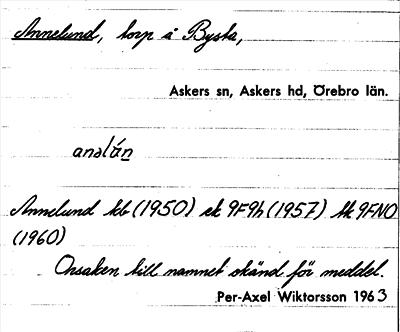 Annelund, torp å Bysta,
Askers sn, Askers hd, Örebro län.
anəlún
Annelund kb (1950) ek 9F9h (1957) tk 9FNO
(1960)
Orsaken till namnet okänd för meddel.
Per-Axel Wiktorsson 1963